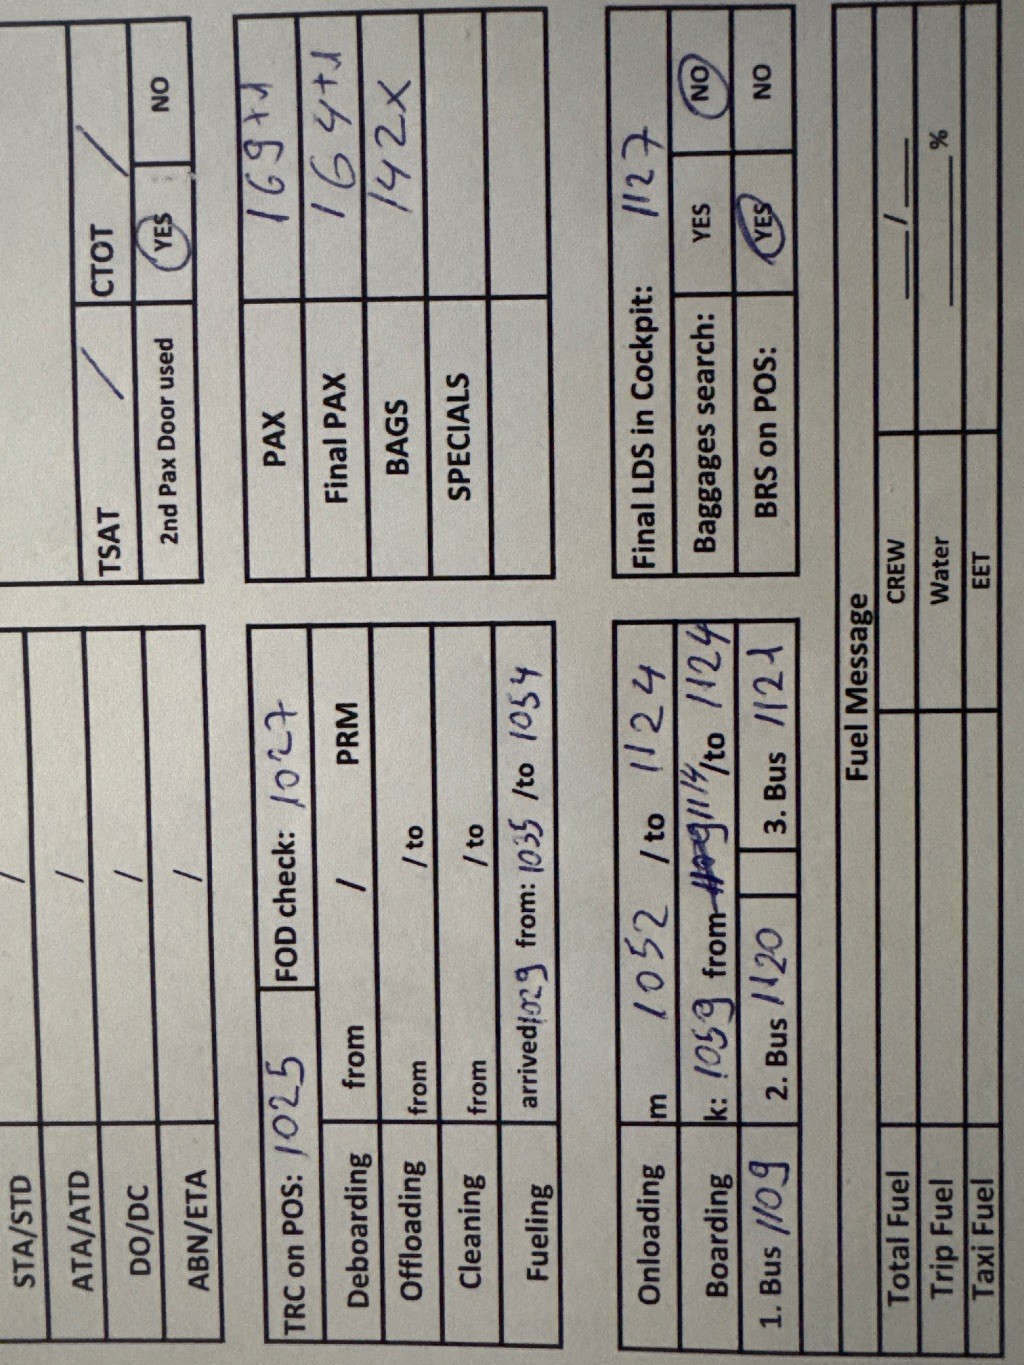 STA/STD /
ATA/ATD /
DO/DC /
ABN/ETA /
TSAT / CTOT /
2nd Pax Door used YES NO
TRC on POS: 1025 FOD check: 1027
Deboarding from / PRM
Offloading from / to
Cleaning from / to
Fueling arrived 1029 from: 1035 /to 1054
PAX 169+1
Final PAX 164+1
BAGS 142X
SPECIALS
Onloading m 1052 /to 1124
Boarding k: 1059 from 1114 /to 1124
1. Bus 1109 2. Bus 1120 3. Bus 1121
Final LDS in Cockpit: 1127
Baggages search: YES NO
BRS on POS: YES NO
Fuel Message
Total Fuel CREW __/__
Trip Fuel Water ____%
Taxi Fuel EET